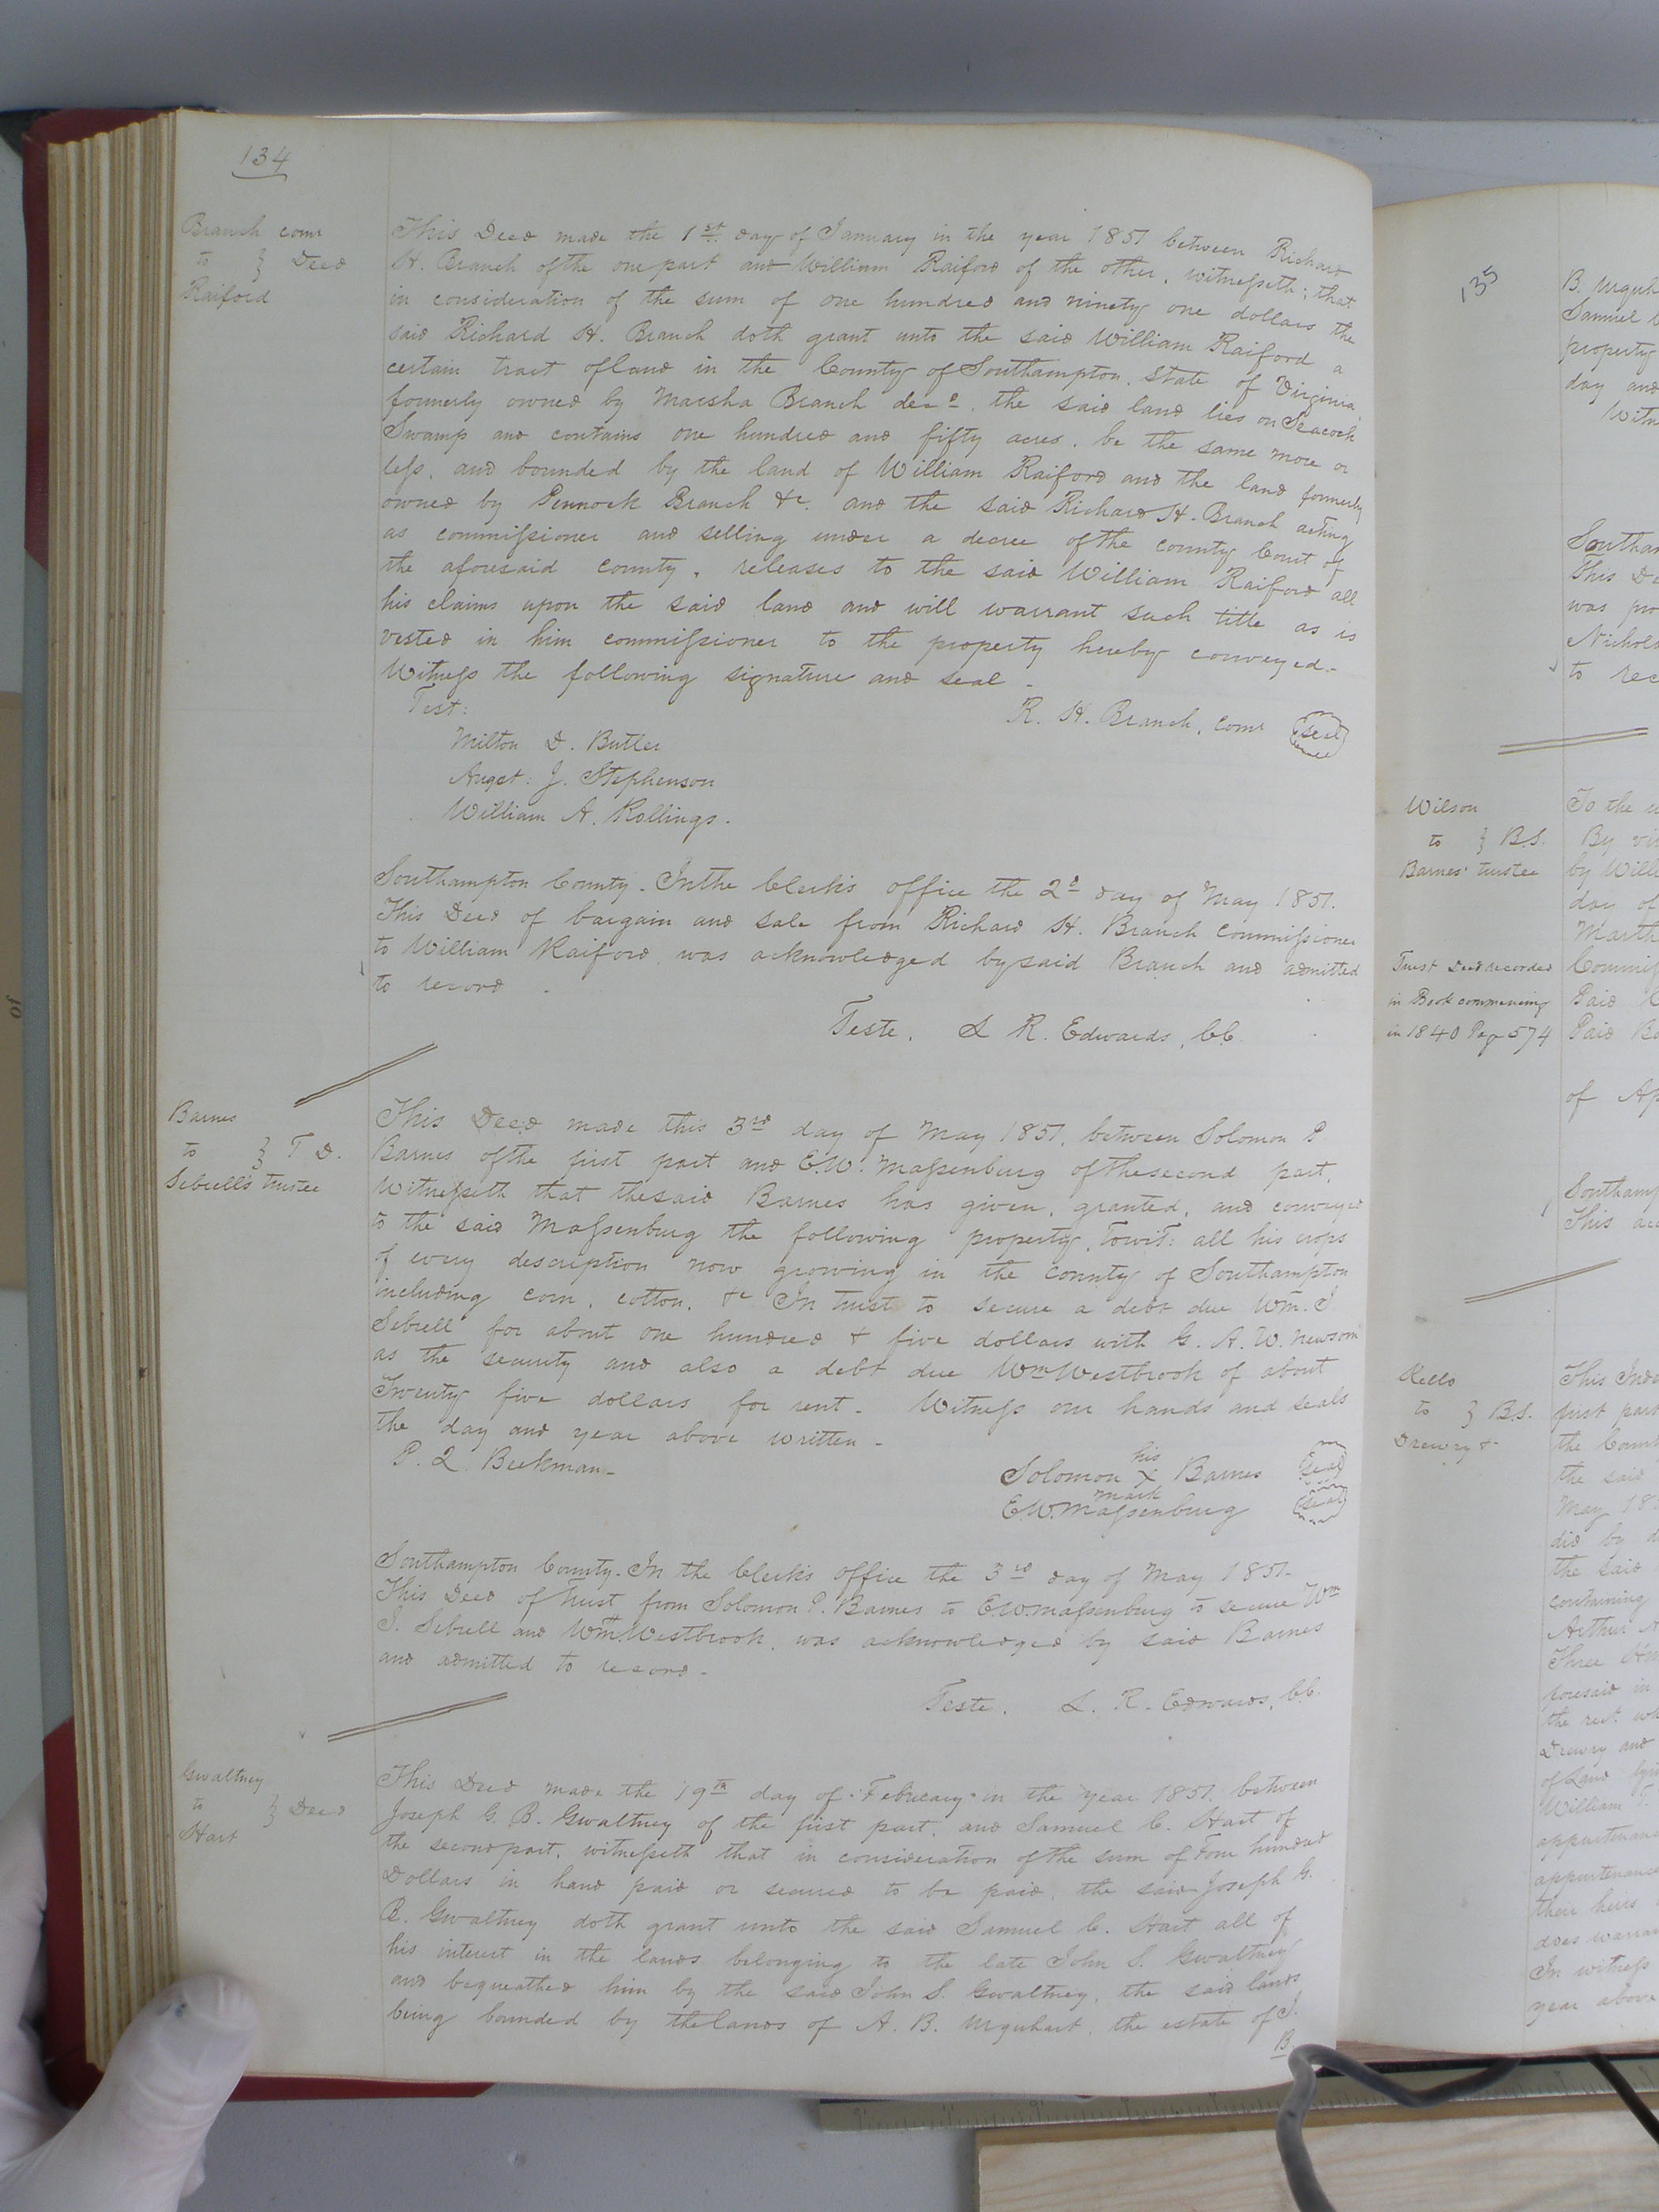 134
Branch comr
to } Deed
Raiford
This Deed made the 1st day of January in the year 1851 between Richard
H. Branch of the one part and William Raiford of the other, witnesseth; that
in consideration of the sum of one hundred and ninety one dollars the
said Richard H. Branch doth grant unto the said William Raiford a
certain tract of land in the County of Southampton, State of Virginia
formerly owned by Marsha Branch decd. the said land lies on Seacock
Swamp and contains one hundred and fifty acres, be the same more or
less, and bounded by the land of William Raiford and the land formerly
owned by Pennock Branch &c. and the said Richard H. Branch acting
as commissioner and selling under a decree of the county Court of
the aforesaid county, releases to the said William Raiford all
his claims upon the said land and will warrant such title as is
vested in him commissioner to the property hereby conveyed.-
Witness the following signature and seal -
Test: R. H. Branch, comr seal
Milton D. Butler
August: J. Stephenson
William A. Rollings.
Southampton County. In the Clerk's office the 2d day of May 1851.
This Deed of bargain and sale from Richard H. Branch Commissioner
to William Raiford, was acknowledged by said Branch and admitted
to record.
Teste. L R. Edwards, CC
Barnes
to } T D.
Sebrell's trustee
This Deed made this 3rd day of May 1851, between Solomon P
Barnes of the first part and E.W. Massenburg of the second part,
Witnesseth that the said Barnes has given, granted, and conveyed
to the said Massenburg the following property, Towit: all his crops
of every description now growing in the county of Southampton
including corn, cotton, &c In trust to secure a debt due Wm. J.
Sebrell for about one hundred & five dollars with G. A. W. Newsom
as the security and also a debt due Wm Westbrook of about
Twenty five dollars for rent - Witness our hands and seals
the day and year above written -
P. Q. Beekman-
his
Solomon X Barnes seal
mark
E.W. Massenburg seal
Southampton County. In the Clerk's office the 3rd day of May 1851-
This Deed of trust from Solomon P. Barnes to E.W. Massenburg to secure Wm
J. Sebrell and Wm Westbrook, was acknowledged by said Barnes
and admitted to record -
Teste. L. R. Edwards, CC.
Gwaltney
to } Deed
Hart
This Deed made the 19th day of February in the year 1851, between
Joseph G. B. Gwaltney of the first part, and Samuel C. Hart of
the second part, witnesseth that in consideration of the sum of Four hundred
Dollars in hand paid or secured to be paid, the said Joseph G.
B. Gwaltney doth grant unto the said Samuel C. Hart all of
his interest in the lands belonging to the late John S. Gwaltney
and bequeathed him by the said John S. Gwaltney, the said lands
being bounded by the lands of A. B. Urquhart, the estate of J.
B.
135
Samuel
property
day and
This
was
to rec
Wilson
to } B.S.
Barnes' trustee
To the
By
by Will
day of
Trust Deed recorded
in Book commencing
in 1840 Page 574
Paid
Paid
of
This
Kello
to } B.S.
Drewry &
This
first part
the
the said
May
did by
the said
containing
Arthur
Three
the rest
Drewry and
of Land
William T.
their heirs
In witness
year above